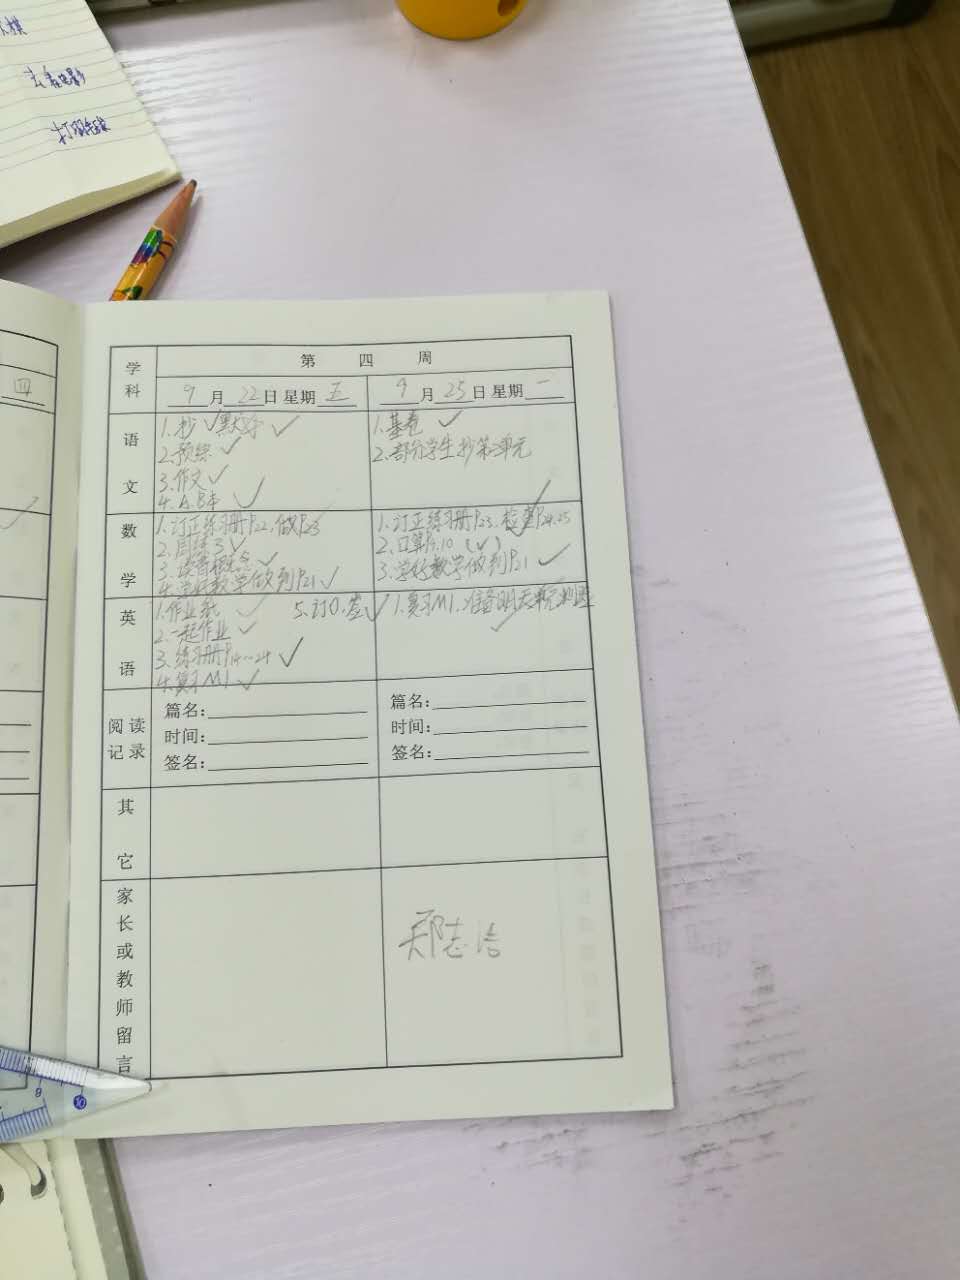 去看电影
四
学科
第 四 周
9月22日 星期五
9月25日 星期一
语文
1.抄
2.预综
3.作文
4.A.B本
1.基卷
2.部分学生抄第2单元
数学
1.订正练习册P22.做P23
2.周练3
4.学好数学做到P21
1.订正练习册P23.检查P24.25
2.口算P9.10
3.学好数学做到P21
英语
1.作业纸
2.一起作业
3.练习册P14-24
4.复习M1
5.订0.签
1.复习M1.准备明天单元测验
阅读记录
篇名:
时间:
签名:
篇名:
时间:
签名:
其它
家长或教师留言
郑志浩
8
10